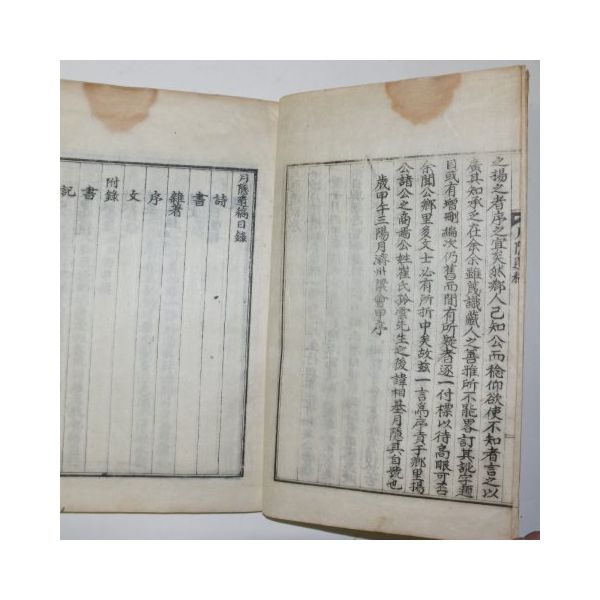 之揚之者序之宜矣然鄉人已知公而稔仰欲使不知者言之以
廣其知承之在余余雖蔑識藏人之善雅所不能畧訂其訛字題
目或有增刪編次仍舊而間有所疑者逐一付標以待高眼可否
余聞公鄉里多文士必有所折中矣故玆一言爲序責于鄉里揚
公諸公之商焉公姓崔氏孤雲先生之後諱相基月隱其自號也
歲甲午三陽月濟州梁會甲序
月隱遺稿
月隱遺稿目錄
詩
書
雜著
序
文
附錄
書
記